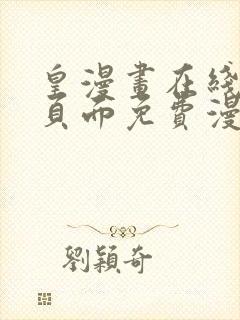 皇漫畫在綫
頁而免費漫
劉穎奇